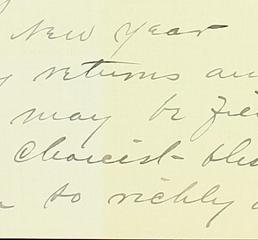 New Year
y returns an
may be fil
choicest blu
so richly